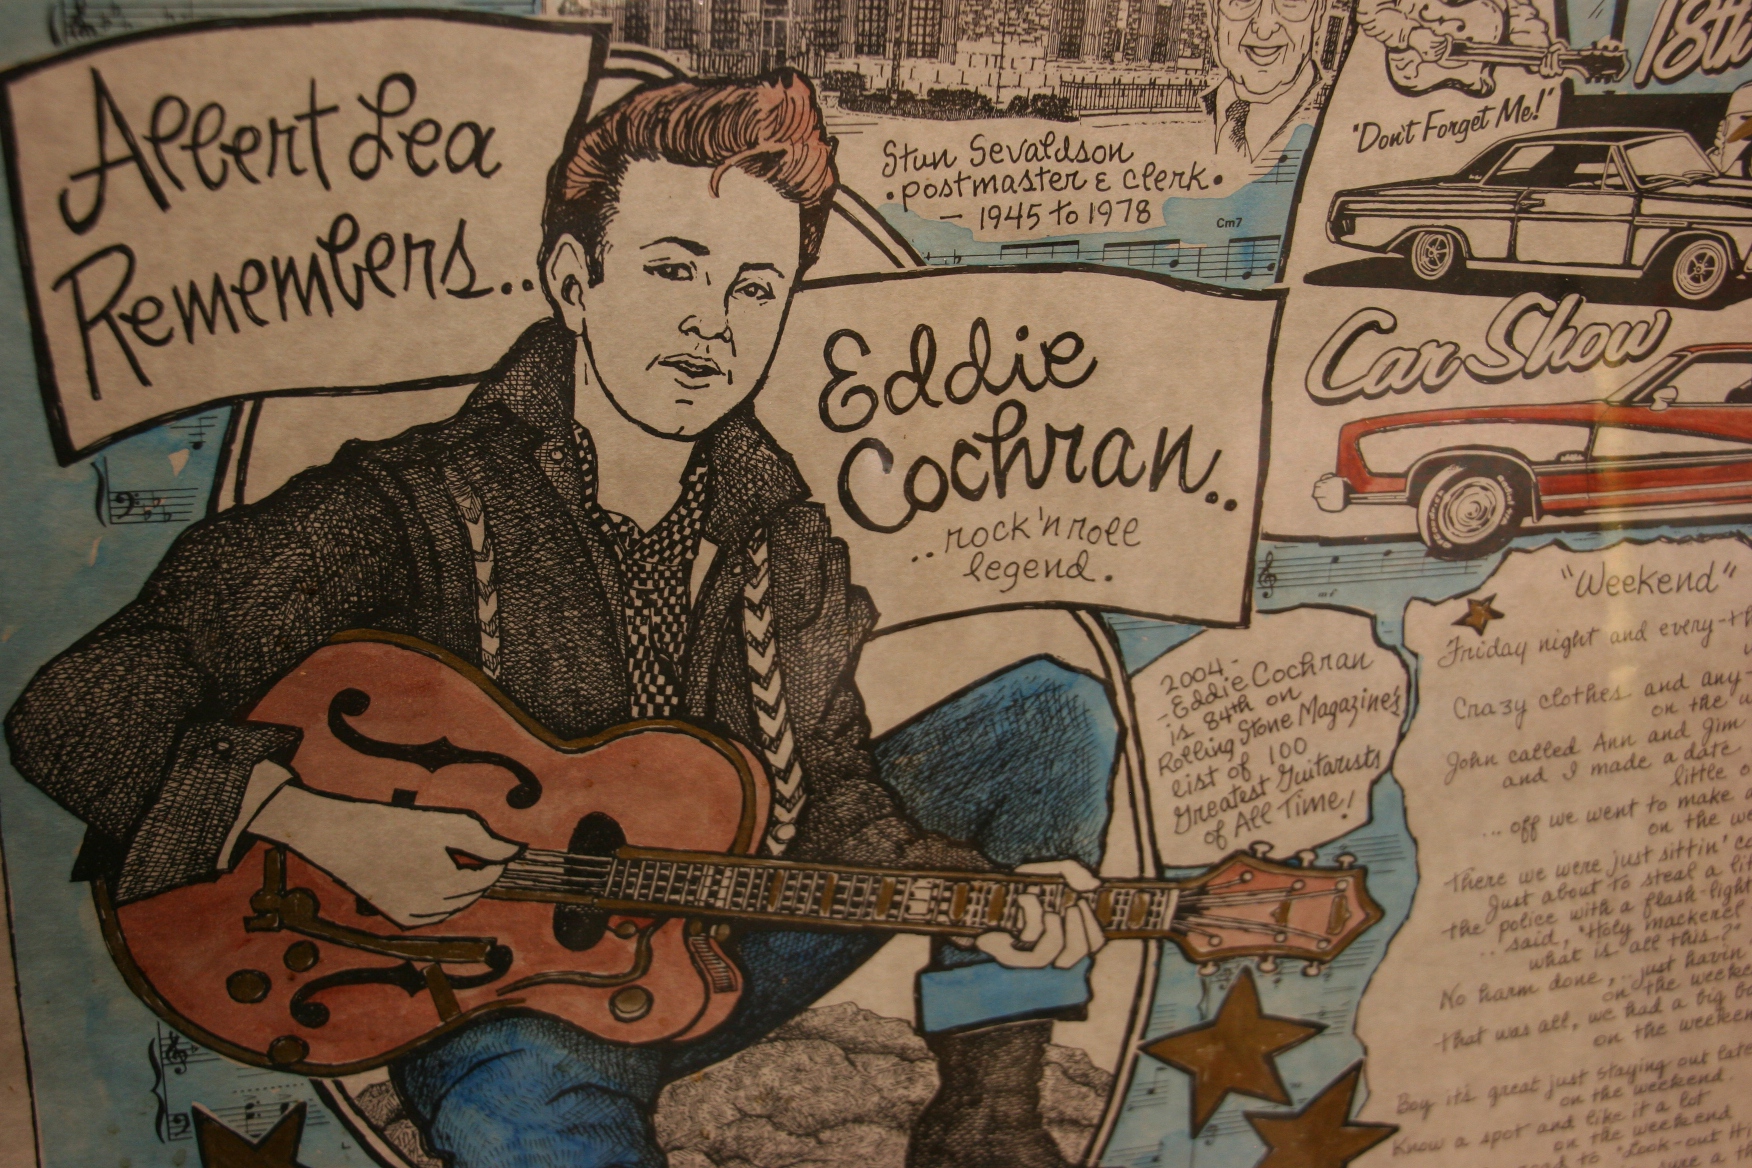 Albert Lea
Remembers..
Stun Sevaldson
• postmaster & clerk •
— 1945 to 1978
Cm7
18th
"Don't Forget Me!"
Car Show
Eddie
Cochran..
..rock 'n roll
legend.
2004-
- Eddie Cochran
is 84th on
Rolling Stone Magazine's
list of 100
Greatest Guitarists
of All Time!
"Weekend"
Friday night and every-th
Crazy clothes and any-
on the w
John called Ann and Jim
and I made a date
little o
... off we went to make a
on the we
There we were just sittin' ca
Just about to steal a lit
the police with a flash-light
.. said, "Holy mackerel
what is all this?"
No harm done, .. just havin
on the weeke
that was all, we had a big ba
on the weeken
Boy it's great just staying out late
on the weekend.
Know a spot and like it a lot
on the weekend
to "Look-out Hi